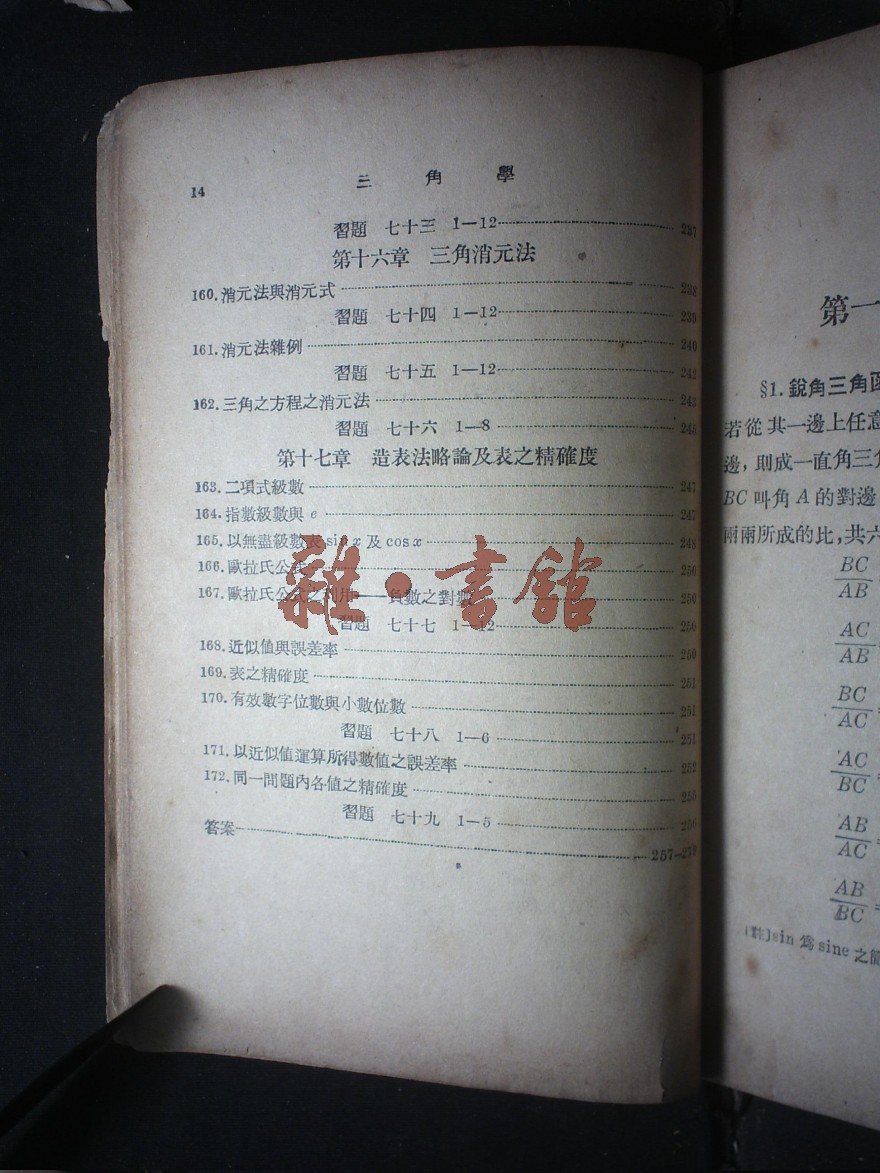 14 三角學
習題 七十三 1—12 237
第十六章 三角消元法
160. 消元法與消元式 238
習題 七十四 1—12 239
161. 消元法雜例 240
習題 七十五 1—12 242
162. 三角之方程之消元法 243
習題 七十六 1—8 245
第十七章 造表法略論及表之精確度
163. 二項式級數 247
164. 指數級數與 e 247
165. 以無盡級數表 sin x 及 cos x 248
166. 歐拉氏公式 250
167. 歐拉氏公式之利用——負數之對數 250
習題 七十七 1—12 250
168. 近似值與誤差率 250
169. 表之精確度 251
170. 有效數字位數與小數位數 251
習題 七十八 1—6 251
171. 以近似值運算所得數值之誤差率 252
172. 同一問題內各值之精確度 255
習題 七十九 1—5 256
答案 257—279
雜·書館
第一
§1. 銳角三角函
若從其一邊上任意
邊,則成一直角三角
BC 叫角 A 的對邊
兩兩所成的比,共六
BC/AB
AC/AB =
BC/AC =
AC/BC =
AB/AC =
AB/BC =
[註] sin 爲 sine 之